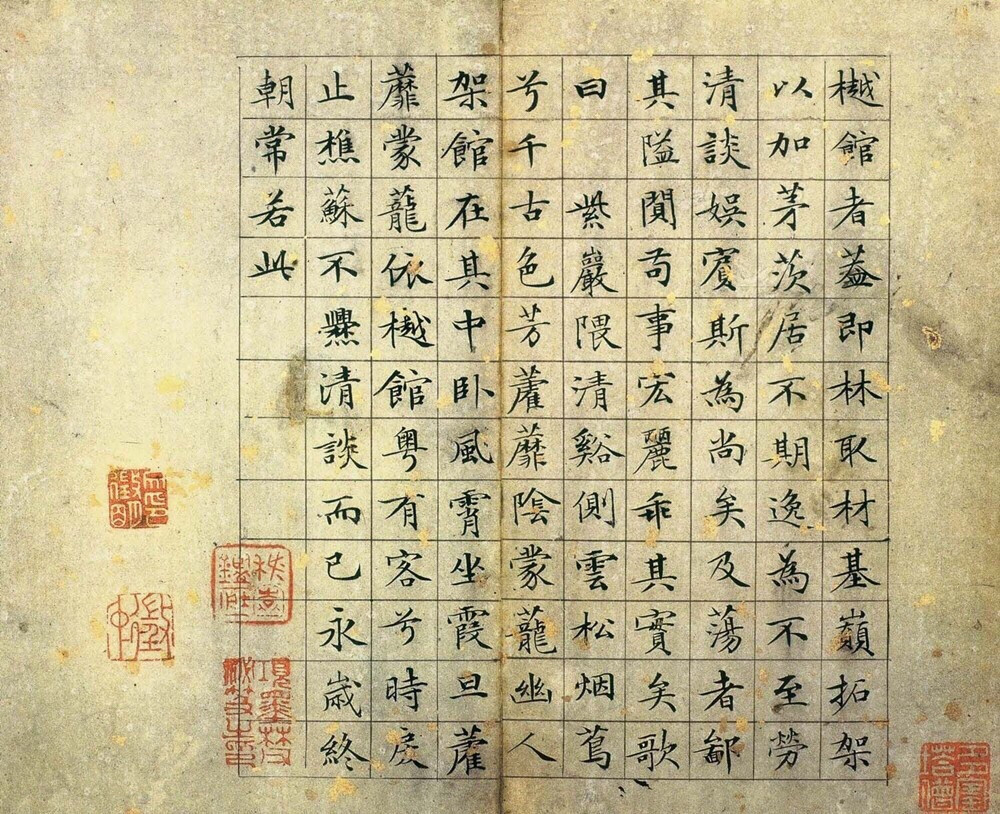 樾館者蓋即林取材基巔拓架
以加茅茨居不期逸為不至勞
清談娛賓斯為尚矣及蕩者鄙
其隘闃苟事宏麗乖其實矣歌
曰 紫巖隈清谿側雲松烟蔦
兮千古色芳藿蘼陰蒙蘢幽人
架館在其中卧風霄坐霞旦藿
蘼蒙蘢依樾館粵有客兮時戾
止樵蘇不爨清談而已永歲終
朝常若此
徵明印
項墨林